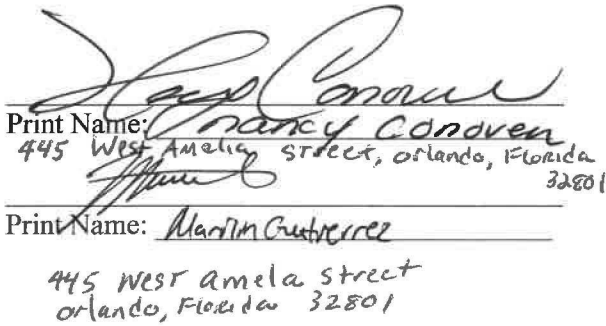 Nancy Conover
Print Name: Nancy Conover
445 West Amelia Street, Orlando, Florida
32801
Print Name: Marilin Gutierrez
445 West Amela Street
Orlando, Florida 32801